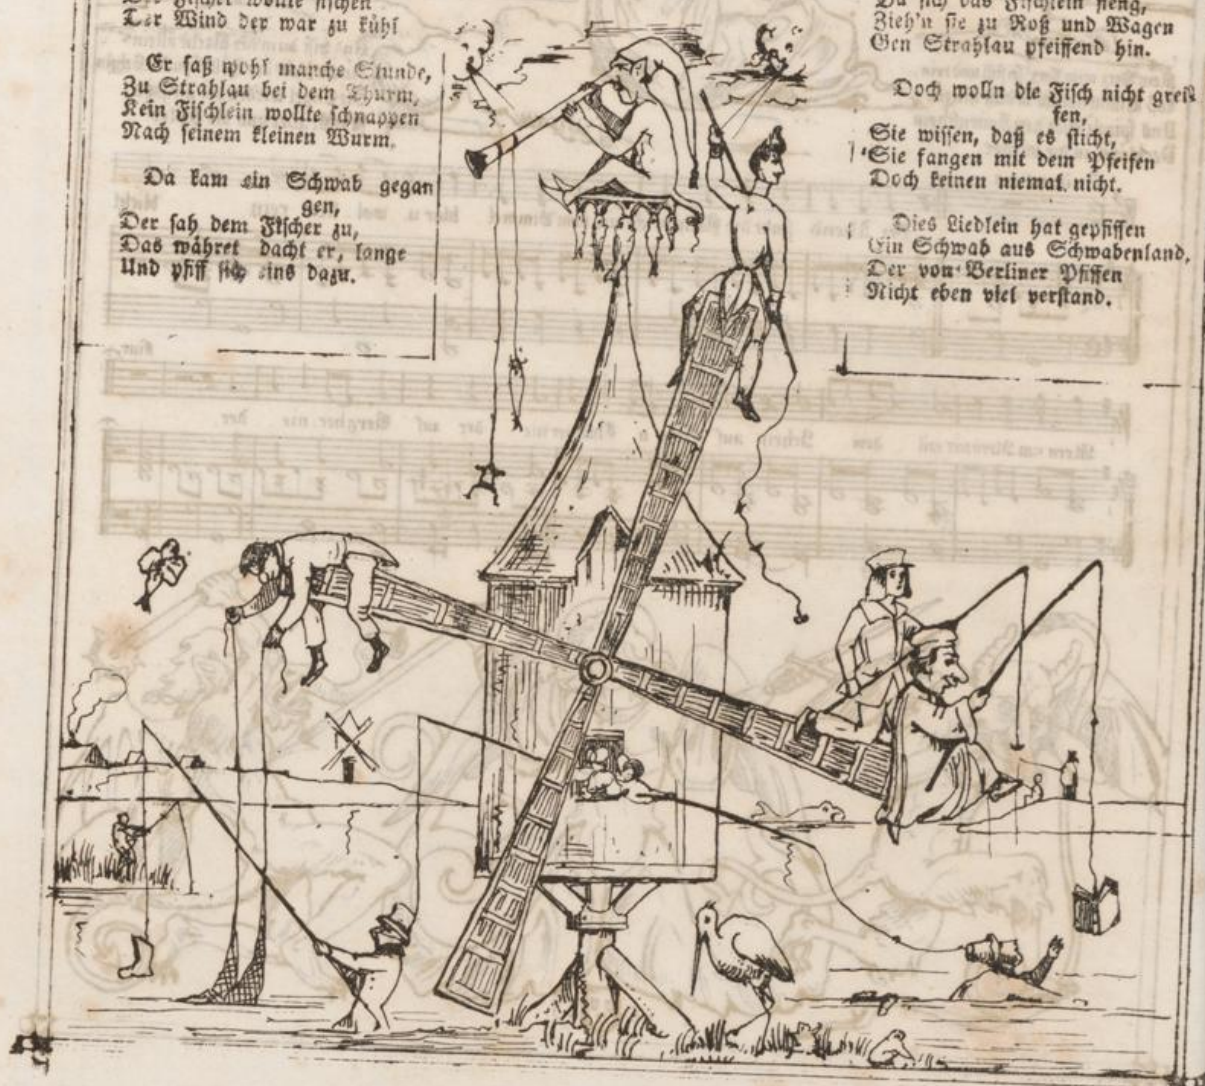 Fischer wollte fischen
Der Wind der war zu kühl
Er saß wohl manche Stunde,
Zu Strahlau bei dem Thurm,
Kein Fischlein wollte schnappen
Nach seinem kleinen Wurm.
Da kam ein Schwab gegan
gen,
Der sah dem Fischer zu,
Das währet dacht er, lange
Und pfiff sich eins dazu.
Da sich das Fischlein fieng,
Zieh'n sie zu Roß und Wagen
Gen Strahlau pfeiffend hin.
Doch wolln die Fisch nicht greif
fen,
Sie wissen, daß es sticht,
Sie fangen mit dem Pfeifen
Doch keinen niemal nicht.
Dies Liedlein hat gepfiffen
Ein Schwab aus Schwabenland,
Der von Berliner Pfiffen
Nicht eben viel verstand.